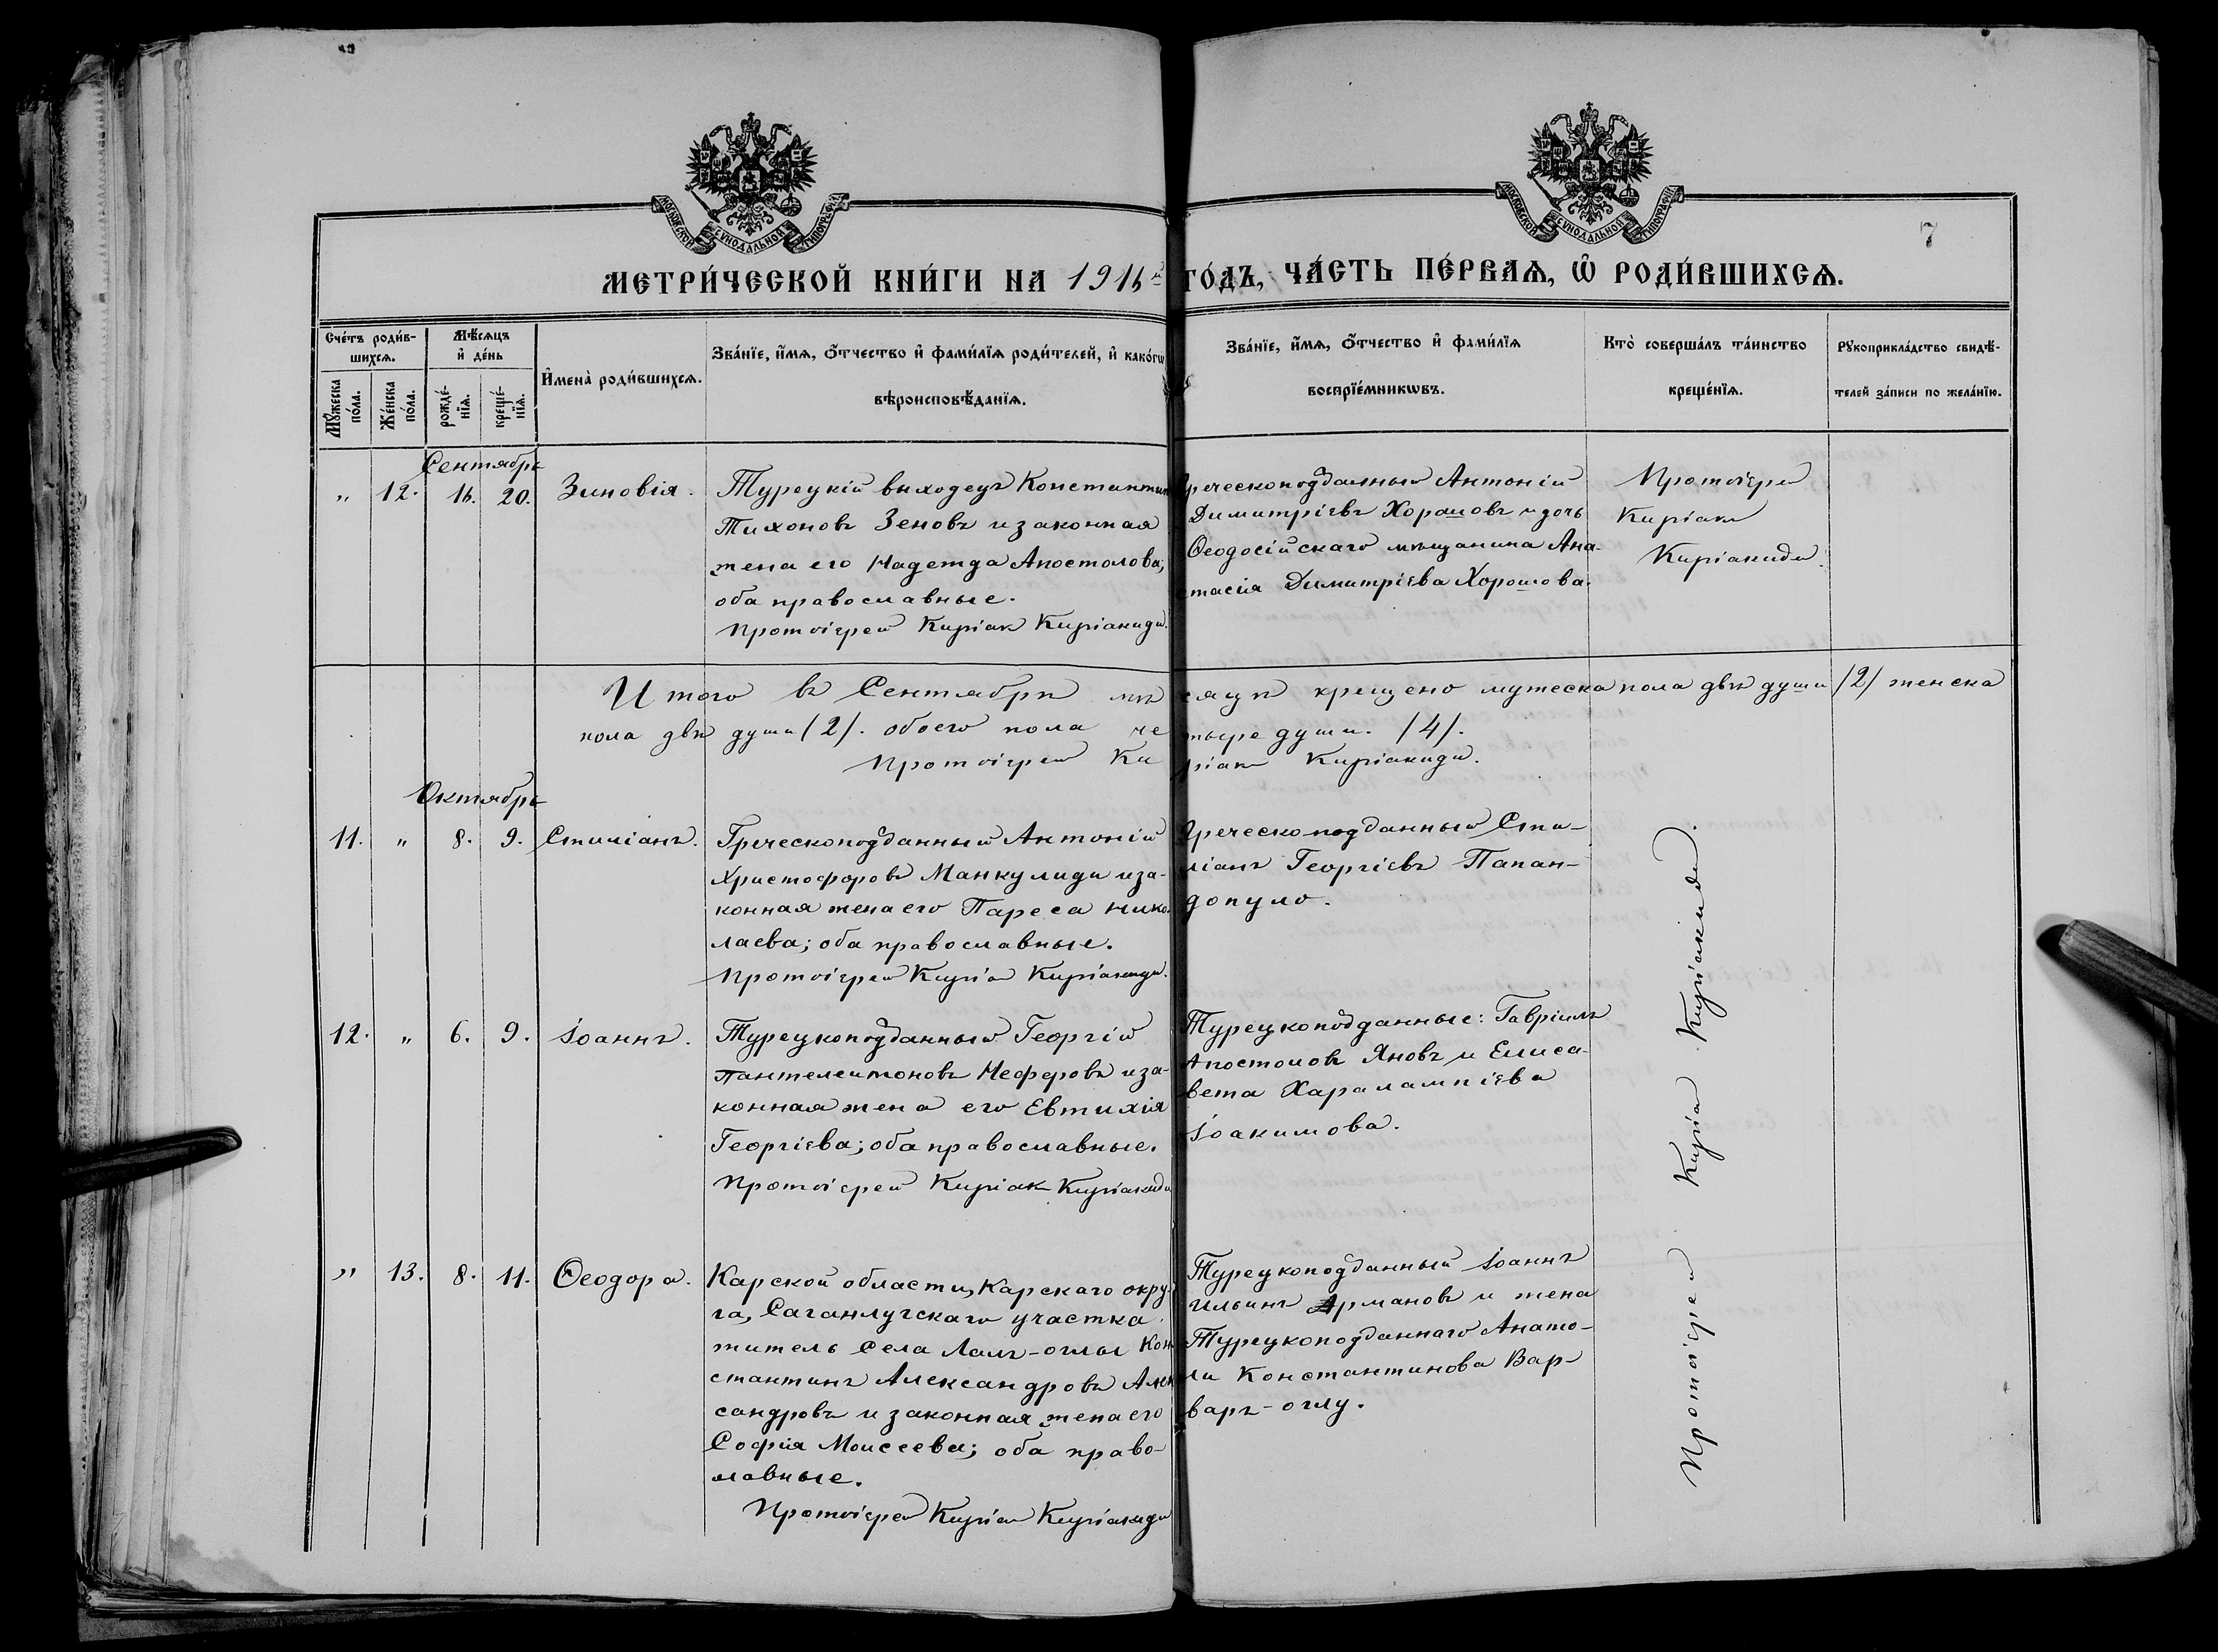 МОСКОВСКОЙ СѴНОДАЛЬНОЙ ТИПОГРАФІИ
МОСКОВСКОЙ СѴНОДАЛЬНОЙ ТИПОГРАФІИ
7
МЕТРИ́ЧЕСКОЙ КНИ́ГИ НА 1916й ГО́ДЪ, ЧА́СТЬ ПЕ́РВАѦ, Ѡ҆ РОДИ́ВШИХСѦ.
Сче́тъ роди́в-
шихсѧ.
Мꙋ́жеска по́ла.
Же́нска по́ла.
Мѣ́сѧцъ и҆ де́нь
рожде́-нїѧ.
креще́-нїѧ.
И҆мена̀ роди́вшихсѧ.
Зва́нїе, и҆́мѧ, ѻ҆́тчество и҆ фами́лїѧ роди́телей, и҆ како́гѡ
вѣроисповѣ́данїѧ.
Зва́нїе, и҆́мѧ, ѻ҆́тчество и҆ фами́лїѧ
воспрїе́мникѡвъ.
Кто̀ соверша́лъ та́инство
креще́нїѧ.
Рꙋкоприкла́дство свидѣ́-
телей за́писи по жела́нїю.
Сентябрь
" 12. 16. 20. Зиновія.
Турецкій выходецъ Константинъ
Тихоновъ Зеновъ и законная
жена его Надежда Апостолова;
оба православные.
Протоіерей Киріак Киріакиди.
Греческоподданный Антоній
Димитріевъ Хорошовъ и дочь
Ѳеодосійскаго мѣщанина Ана-
стасія Димитріева Хорошова.
Протоіерей
Киріак
Киріакиди.
Итого въ Сентябрѣ мѣсяцѣ крещено мужеска пола двѣ души /2/ женска
пола двѣ души /2/. обоего пола четыре души. /4/.
Протоіерей Киріак Киріакиди.
Октябрь
11. " 8. 9. Стиліанъ.
Греческоподданный Антоній
Христофоровъ Манкулиди и за-
конная жена его Пареса Нико-
лаева; оба православные.
Протоіерей Киріак Киріакиди.
Греческоподданный Сти-
ліанъ Георгіевъ Папан-
допуло.
12. " 6. 9. Іоаннъ.
Турецкоподданный Георгій
Пантелеимоновъ Неферовъ и за-
конная жена его Евтихія
Георгіева; оба православные.
Протоіерей Киріак Киріакиди
Турецкоподданные: Гавріилъ
Апостоловъ Яновъ и Елиса-
вета Харалампіева
Іоакимова.
" 13. 8. 11. Ѳеодора.
Карской области, Карскаго окру-
га, Саганлугскаго участка
житель села Лалъ-оглы Кон-
стантинъ Александровъ Алек-
сандровъ и законная жена его
Софія Моисеева; оба право-
лавные.
Протоіерей Киріак Киріакиди
Турецкоподданный Іоаннъ
Ильинъ Армановъ и жена
Турецкоподданнаго Анато-
ли Константинова Вар-
варъ-оглу.
Протоіерей Киріак Киріакиди.